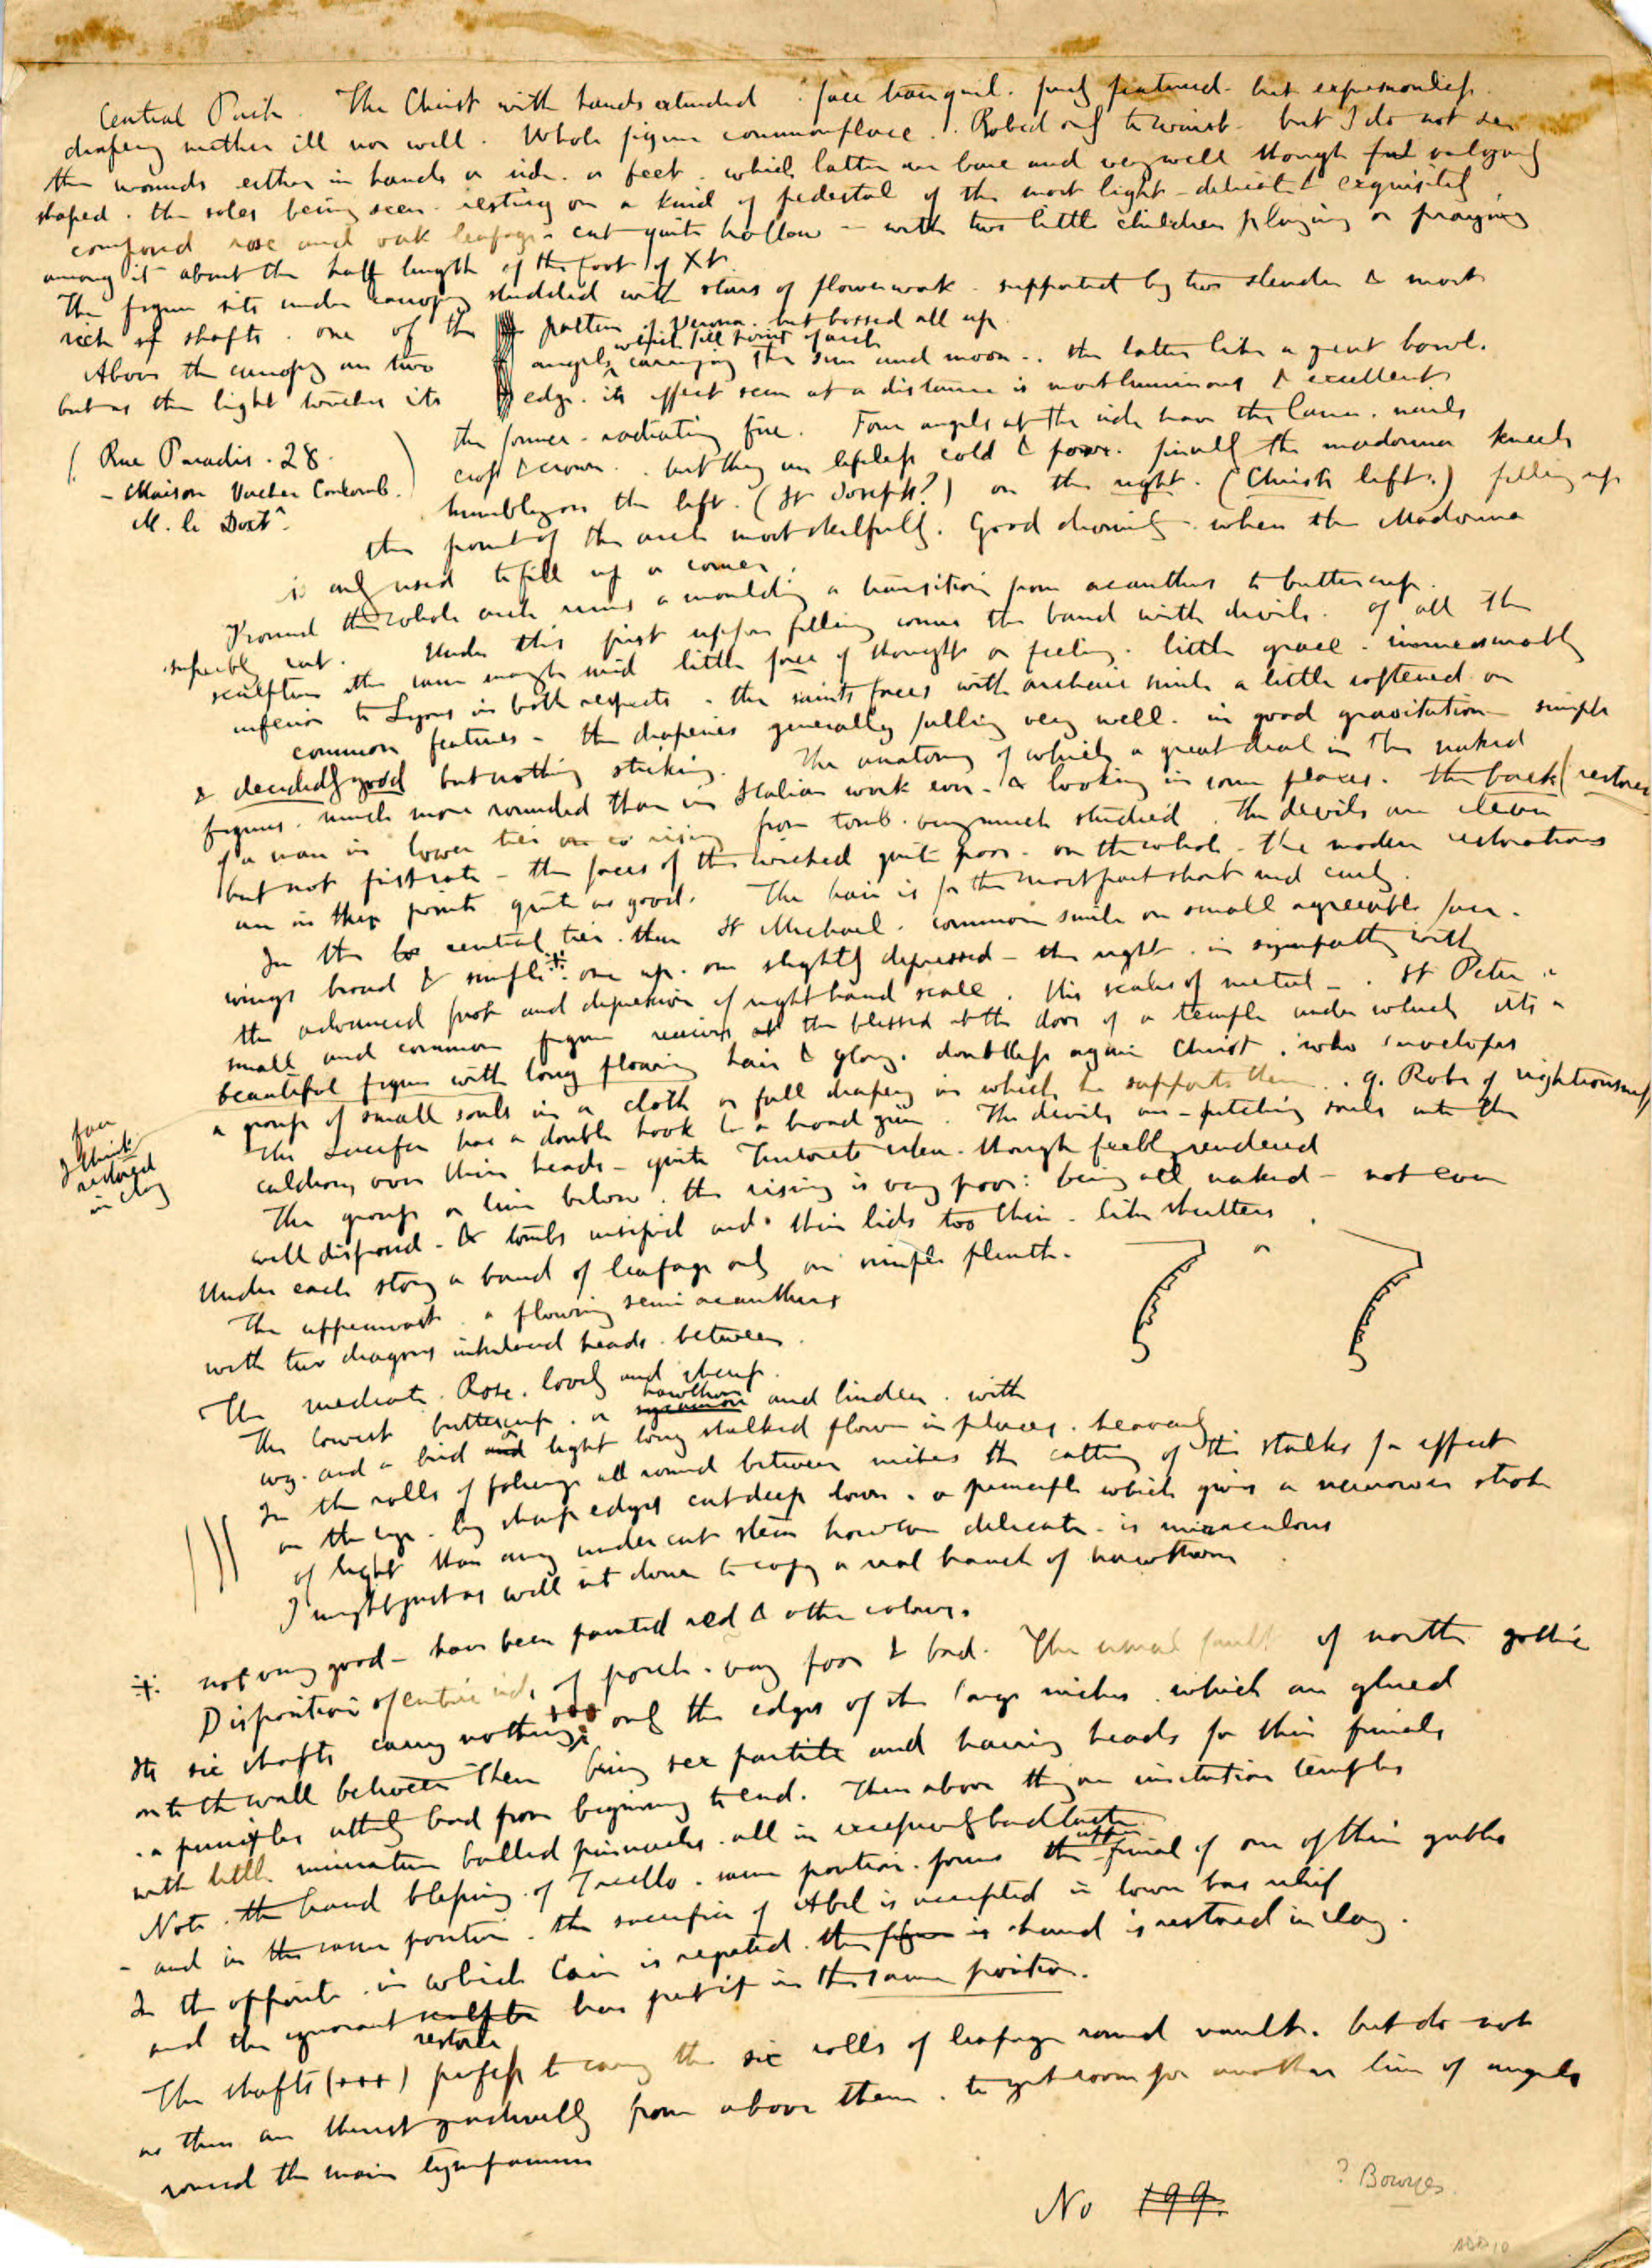 Central Porch. The Christ with hands extended. face tranquil. finely featured. but expressionless.
drapery neither ill nor well. Whole figure commonplace. Robed only to waist. but I do not see
the wounds either in hands or side. or feet. which latter are bare and very well though vulgarly
shaped. the soles being seen. resting on a kind of pedestal of the most light - delicate & exquisitely
composed rose and oak leafage - cut quite hollow - with two little children playing or praying
among it about the half length of the foot of Xt.
The figure sits under canopy studded with stars of flowerwork. supported by two slender & most
rich shafts. one of the pattern of Verona. but bossed all up
Above the canopy are two angels which fill point of arch carrying the sun and moon -. the latter like a great bowl.
but as the light touches its edge. its effect seen at a distance is most luminous & excellent
the former - radiating fire. Four angels at the side have the lance. nails
( Rue Paradis. 28.
- Maison Vacher
M. le Doctr.
cross & crown. but they are lifeless cold & poor. finally the madonna kneels
humbly on the left. (St Joseph?) on the right. (Christs left.) filling up
the point of the arch most skilfully. Good drawing. when the Madonna
is only used to fill up a corner.
Round the whole arch runs a moulding a transition from acanthus to buttercup.
superbly cut. Under this first upper filling comes the band with devils. of all the
sculpture the same might said little force of thought or feeling. little grace. immeasurably
inferior to Lyons in both respects - the saints faces with archaic smile a little softened on
common features - the draperies generally falling very well. in good gravitation - simple
& decidedly good but nothing striking. The anatomy of which a great deal in the naked
figures. much more rounded than in Italian work looking in some places. the back (restored
of a man in lower tier rising from tomb. very much studied. The devils are clever
but not first rate - the faces of the wicked quite poor - on the whole - the modern restorations
are in these points quite as good. The hair is for the most part short and curly.
In the central tier. the St Michael. common smile on small agreeable face.
wings broad & simple ⁜ one up. one slightly depressed - the right. in sympathy with
the advanced foot and depression of right hand scale. His scales of metal -. St Peter a
small and common figure receives the blessed at the door of a temple under which sits a
beautiful figure with long flowing hair & glory. doubtless again Christ. who envelopes
a group of small souls in a cloth or full drapery in which he supports them. q. Robe of righteousness
face
I think
restored
in clay
The Lucifer has a double hook & a broad grin. The devils are - pitching souls into the
caldrons over their heads - quite Tintoret idea. though feebly rendered
The group or line below. the rising is very poor: being all naked - not even
well disposed - & tombs insipid and their lids too thin - like shutters.
Under each story a band of leafage only on simple plinth. or
The uppermost. a flowing semi acanthus
with two dragons interlaced heads. between.
The mediate. Rose. lovely and sharp.
The lowest buttercup. or sycamore hawthorn and linden. with
ivy. and a bird and light long stalked flower in places. heavenly
In the rolls of foliage all round between niches the cutting of the stalks for effect
on the eye. by sharp edges cut deep down. a principle which gives a narrower stroke
of light than any undercut stem however delicate - is miraculous
I might just as well sit down to copy a real branch of hawthorn
⁜ not very good - have been painted red & other colours.
Disposition of entire side of porch. very poor & bad. The usual fault of north gothic
Its six shafts carry nothing +++ only the edges of the large niches. which are glued
onto the wall between them being sex partite and having heads for their finials
. a principle utterly bad from beginning to end. Then above they are imitation temples
with little miniature balled pinnacles. all in bad taste
Note. the hand blessing. of Torcello. same position. forms the upper finial of one of their gables
- and in the same position. the sacrifice of Abel is accepted in lower bas relief
In the opposite. in which Cain is rejected. the figure is hand is restored in clay.
and the ignorant sculptor restorer has put it in the same position.
The shafts (+++) profess to carry the six rolls of leafage round vault. but do not
as these are thrust gradually from above them. to get room for another line of angels
round the main tympanum
No 199.
? Bourges.